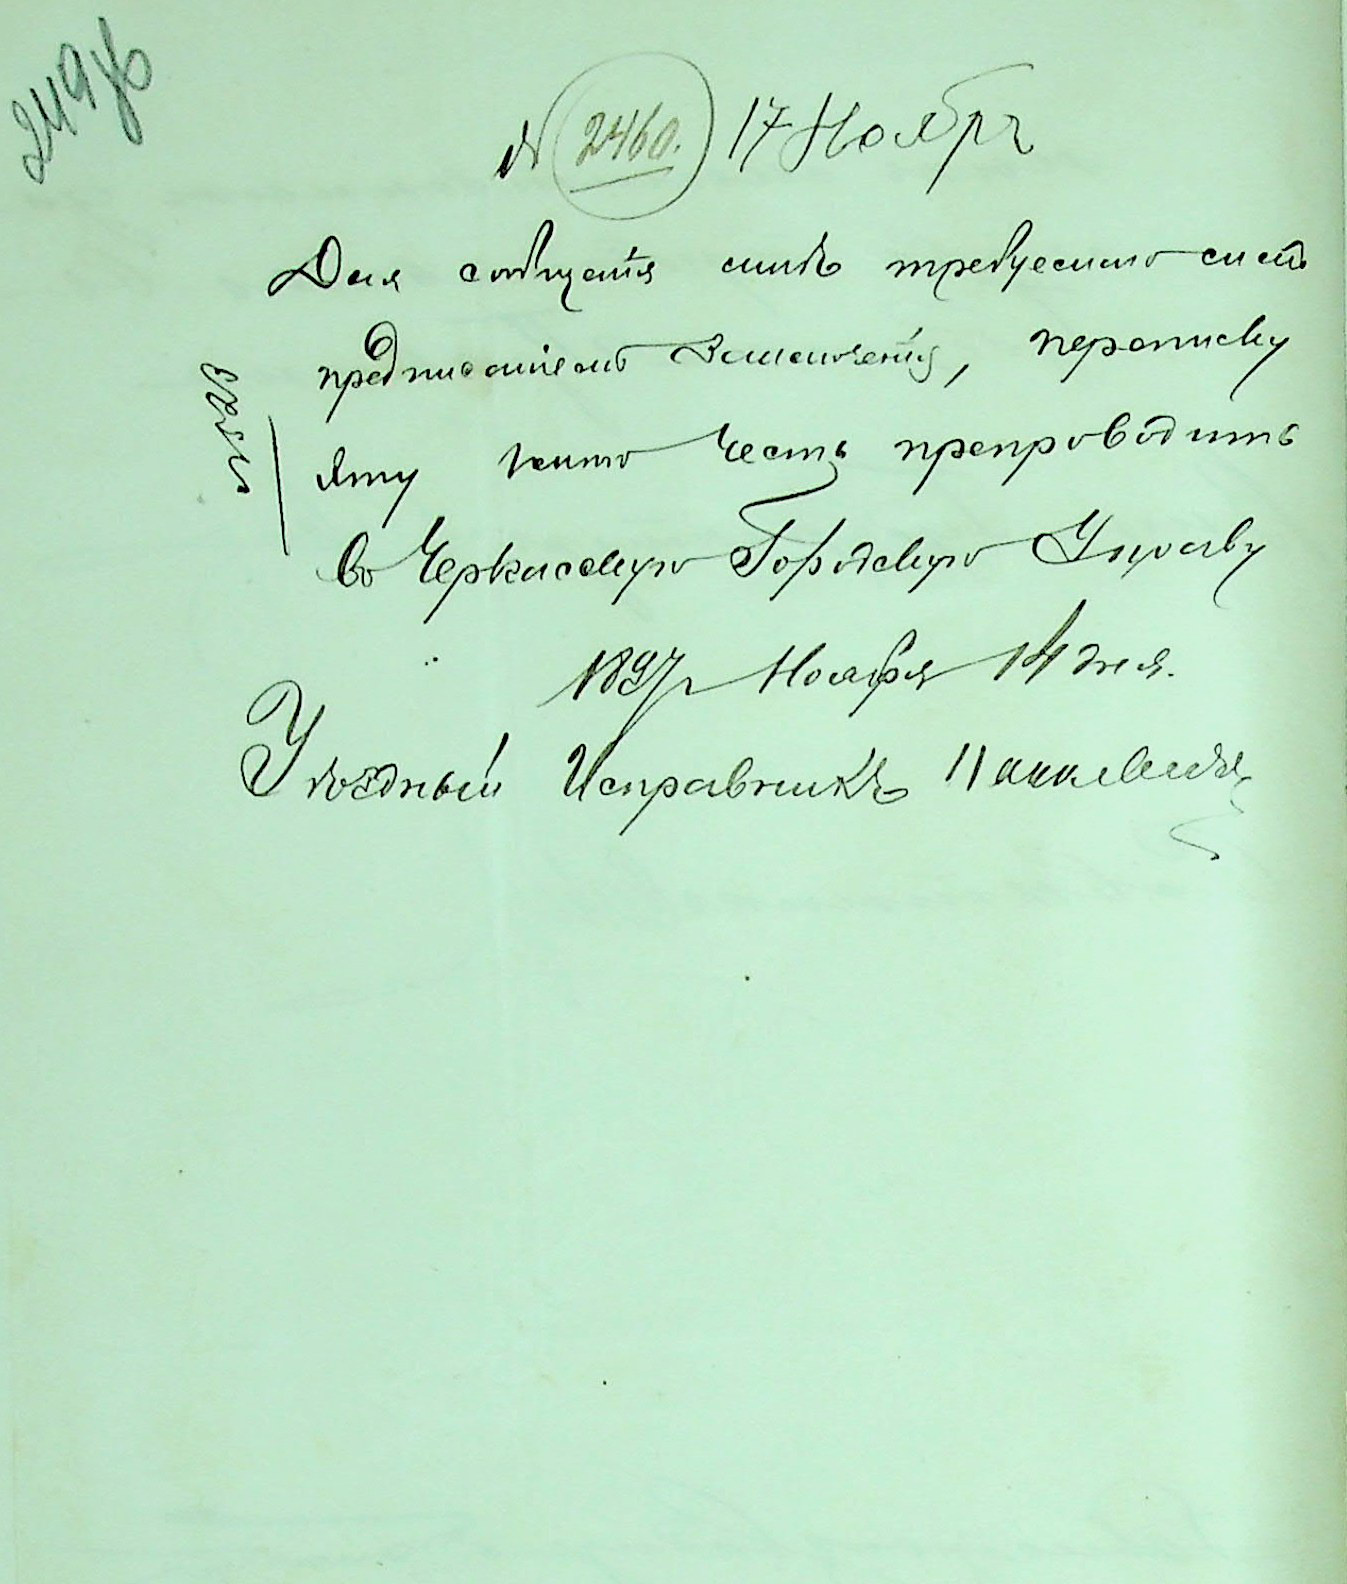 № 2460. 17 Ноябр
Для сообщенія мнѣ требуемаго симъ
предписаніемъ заключенія, переписку
эту имѣю честь препроводить
въ Черкасскую Городскую Управу
1897 г Ноября 14 дня.
Уѣздный Исправникъ